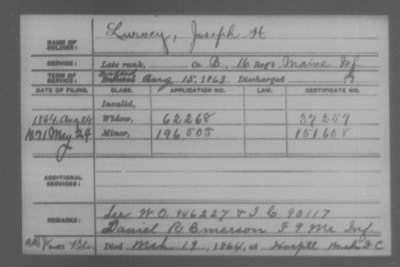 NAME OF SOLDIER: Lurvey, Joseph H
SERVICE: Late rank, Co. B, 16 Reg't Maine Inf
TERM OF SERVICE: Enlisted Aug 15, 1863. Discharged
DATE OF FILING. CLASS. APPLICATION NO. LAW. CERTIFICATE NO.
Invalid,
1864, Aug Widow, 62268 37259
1871 May 24 Minor, 196505 151608
ADDITIONAL SERVICES:
REMARKS: See W O 146227 & I C 90117
Daniel R Emerson F 9 Me Inf
Died Mch 19, 1864, at Hospt'l Wash D C